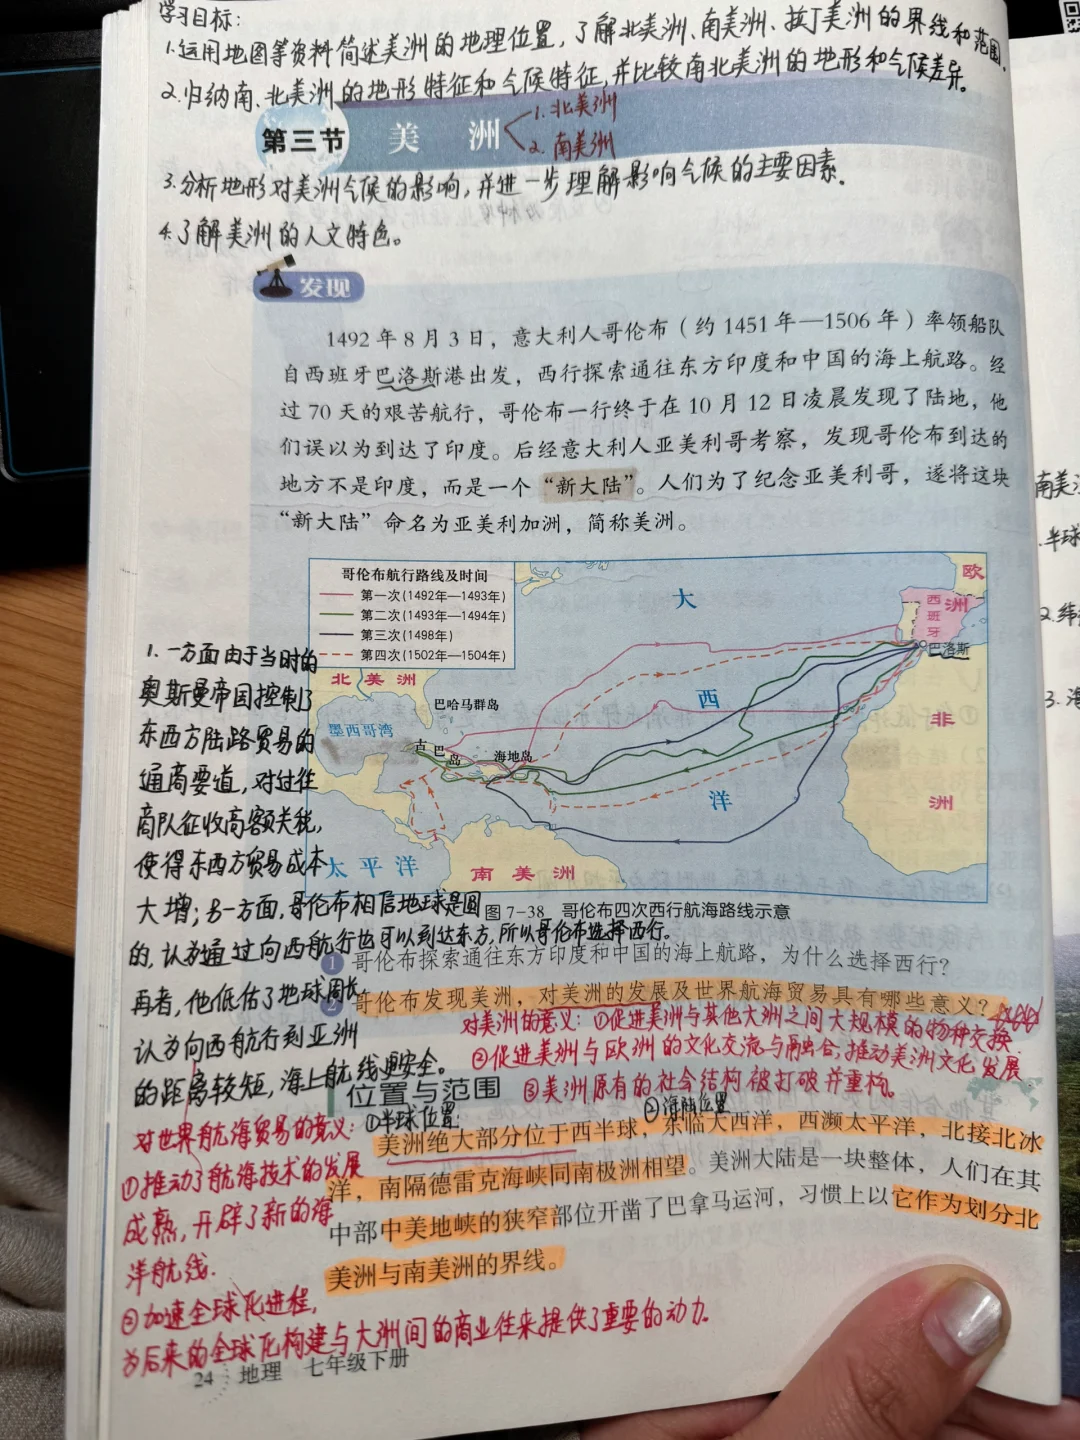 学习目标：
1.运用地图等资料简述美洲的地理位置，了解北美洲、南美洲、拉丁美洲的界线和范围.
2.归纳南、北美洲的地形特征和气候特征，并比较南北美洲的地形和气候差异。
第三节 美洲
1.北美洲
2.南美洲
3.分析地形对美洲气候的影响，并进一步理解影响气候的主要因素.
4.了解美洲的人文特色。
发现
1492 年 8 月 3 日，意大利人哥伦布（约 1451 年—1506 年）率领船队
自西班牙巴洛斯港出发，西行探索通往东方印度和中国的海上航路。经
过 70 天的艰苦航行，哥伦布一行终于在 10 月 12 日凌晨发现了陆地，他
们误以为到达了印度。后经意大利人亚美利哥考察，发现哥伦布到达的
地方不是印度，而是一个“新大陆”。人们为了纪念亚美利哥，遂将这块
“新大陆”命名为亚美利加洲，简称美洲。
哥伦布航行路线及时间
第一次(1492年—1493年)
第二次(1493年—1494年)
第三次(1498年)
第四次(1502年—1504年)
欧洲
西班牙
巴洛斯
大西洋
北美洲
巴哈马群岛
墨西哥湾
古巴岛
海地岛
非洲
太平洋
南美洲
图 7-38 哥伦布四次西行航海路线示意
1.一方面由于当时的
奥斯曼帝国控制了
东西方陆路贸易的
通商要道，对过往
商队征收高额关税，
使得东西方贸易成本
大增；另一方面，哥伦布相信地球是圆
的，认为通过向西航行也可以到达东方，所以哥伦布选择西行。
再者，他低估了地球周长
认为向西航行到亚洲
的距离较短，海上航线更安全。
1 哥伦布探索通往东方印度和中国的海上航路，为什么选择西行？
2 哥伦布发现美洲，对美洲的发展及世界航海贸易具有哪些意义？
对美洲的意义：①促进美洲与其他大洲之间大规模的物种交换.
②促进美洲与欧洲的文化交流与融合，推动美洲文化发展
③美洲原有的社会结构被打破并重构。
位置与范围
①半球位置
②海陆位置
美洲绝大部分位于西半球，东临大西洋，西濒太平洋，北接北冰
洋，南隔德雷克海峡同南极洲相望。美洲大陆是一块整体，人们在其
中部中美地峡的狭窄部位开凿了巴拿马运河，习惯上以它作为划分北
美洲与南美洲的界线。
对世界航海贸易的意义：
①推动了航海技术的发展
成熟，开辟了新的海
洋航线.
②加速全球化进程，
为后来的全球化构建与大洲间的商业往来提供了重要的动力.
24 地理 七年级下册
南美
1.半球
2.纬
3.海